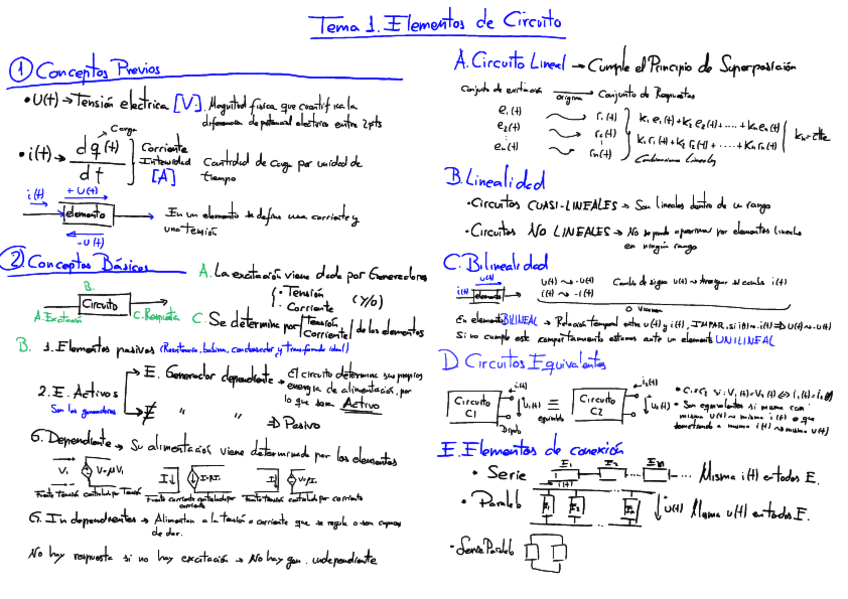 Tema 1. Elementos de Circuito
① Conceptos Previos
• U(t) → Tensión electrica [V]. Magnitud física que cuantifica la
diferencia de potencial electrico entre 2 pts
Carga
• i(t) → dq(t) / dt Corriente Intensidad [A] Cantidad de carga por unidad de tiempo
i(t) + U(t)
elemento → En un elemento se define una corriente y
una tensión
-U(t)
② Conceptos Básicos
A. La excitación viene dada por Generadores
• Tensión
• Corriente (y/o)
B.
Circuito
A. Excitación
C. Respuesta
C. Se determina por Tensión Corriente de los elementos
B. 1. Elementos pasivos (Resistencia, bobina, condensador y transformador ideal)
2. E. Activos
Son los generadores
E. Generador dependiente → El circuito determina sus propios
energia de alimentación, por
lo que sean Activo
∄ " " ⇒ Pasivo
G. Dependiente → Su alimentación viene determinada por los elementos
V₁ V=μV₁
Fuente tensión controlada por Tensión
Fuente corriente controlada por corriente
Fuente tensión controlada por corriente
G. Independientes → Alimentan a la tensión o corriente que se regula o son capaces
de dar.
No hay respuesta si no hay excitación → No hay gen. independiente
A. Circuito Lineal → Cumple el Principio de Superposición
Conjunto de excitación origina Conjunto de Respuestas
e₁(t) r₁(t)
e₂(t) r₂(t)
eₙ(t) rₙ(t)
K₁e₁(t)+K₂e₂(t)+....+Kₙeₙ(t)
K₁r₁(t)+K₂r₂(t)+....+Kₙrₙ(t)
Kₙ=cte
Combinaciones Lineales
B. Linealidad
• Circuitos CUASI-LINEALES → Son lineales dentro de un rango
• Circuitos NO LINEALES → No se puede aproximar por elementos lineales
en ningún rango
C. Bilinealidad
U(t)
i(t) elemento
U(t) ⤳ -U(t)
i(t) ⤳ -i(t)
Cambio de signo U(t) →
cambia i(t)
O Viceversa
En elemento BILINEAL → Relación temporal entre U(t) y i(t), IMPAR, si i(t) ⤳ -i(t) ⇒ U(t) ⤳ -U(t)
Si no cumple este comportamiento estamos ante un elemento UNILINEAL
D Circuitos Equivalentes
Circuito C1 i₁(t) U₁(t) ≡ equivalente Circuito C2 i₂(t) U₂(t)
Dipolo
• C₁=C₂ si: V₁(t)=V₂(t) ⇔ i₁(t)=i₂(t)
• Son equivalentes si misma con
misma U(t) → misma i(t) o que
sometiendo a misma i(t) → misma U(t)
E. Elementos de conexión
• Serie E₁ E₂ Eₙ ... Misma i(t) en todos E.
i(t)
• Paralelo E₁ E₂ Eₙ U(t) Misma U(t) en todos E.
• Serie Paralelo